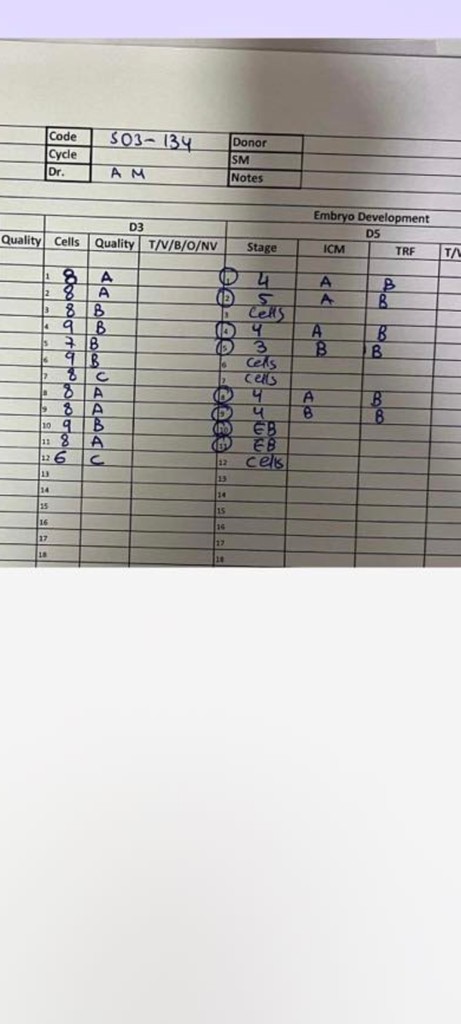 Code SO3-134 Donor
Cycle SM
Dr. A M Notes
Embryo Development
D3 D5
Quality Cells Quality T/V/B/O/NV Stage ICM TRF T/V
1 8 A 1 4 A B
2 8 A 2 5 A B
3 8 B 3 Cells
4 9 B 4 4 A B
5 7 B 5 3 B B
6 9 B 6 Cells
7 8 C 7 Cells
8 8 A 8 4 A B
9 8 A 9 4 B B
10 9 B 10 EB
11 8 A 11 EB
12 6 C 12 Cells
13 13
14 14
15 15
16 16
17 17
18 18